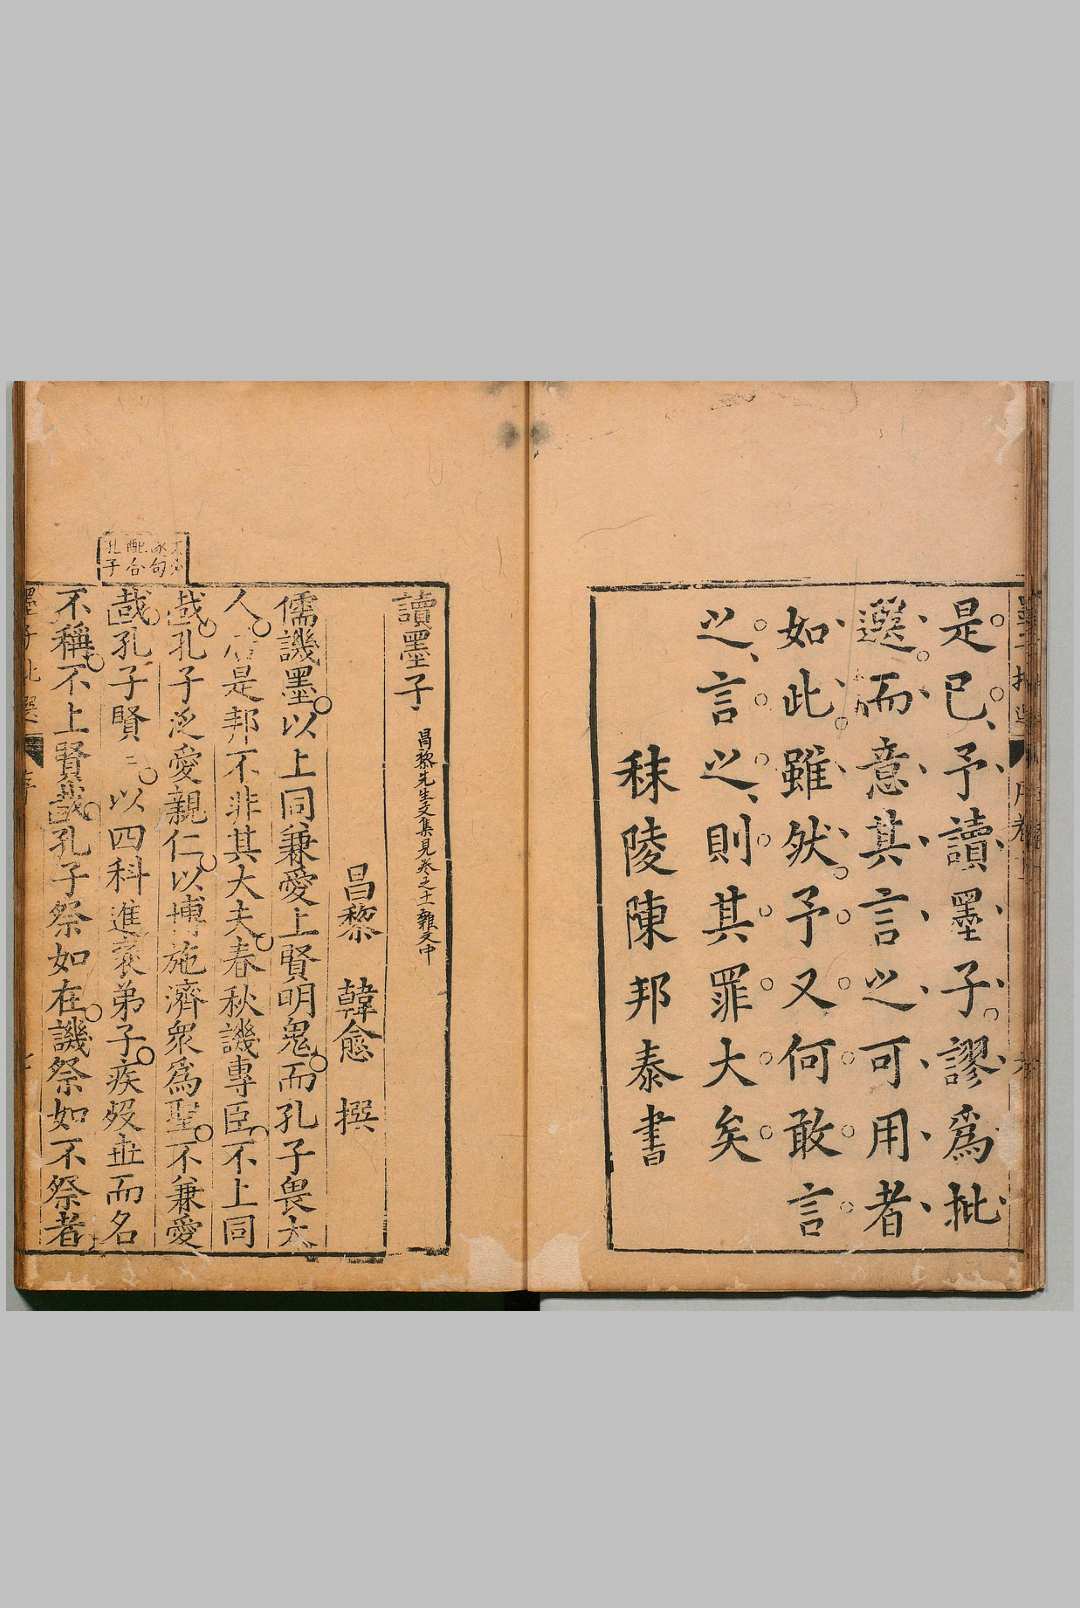 是已予讀墨子謬爲批
選而意其言之可用者
如此雖然予又何敢言
之言之則其罪大矣
秣陵陳邦泰書
讀墨子
昌黎先生文集見卷之十一雜文中
昌黎 韓愈 撰
儒譏墨以上同兼愛上賢明鬼而孔子畏大
人居是邦不非其大夫春秋譏專臣不上同
哉孔子泛愛親仁以博施濟衆爲聖不兼愛
哉孔子賢賢以四科進褒弟子疾歿世而名
不稱不上賢哉孔子祭如在譏祭如不祭者
句
配合
孔子